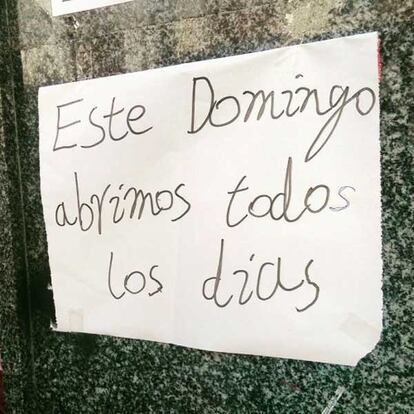 Este Domingo
abrimos todos
los dias